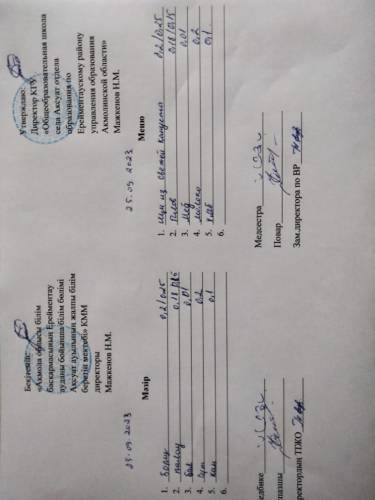 Бекітемін:
«Ақмола облысы білім
басқармасының Ерейментау
ауданы бойынша білім бөлімі
Ақсуат ауылының жалпы білім
беретін мектебі» КММ
директоры
Мажкенов Н.М.
25.09.2023
Мәзір
1. Борщ 0,2/0,25
2. палау
3. бал 0,01
4. сүт 0,2
5. нан 0,1
6.
Медбике
Аспазшы
Директордың ТІЖО
Утверждаю:
Директор КГУ
«Общеобразовательная школа
села Аксуат отдела
образования по
Ерейментаускому району
управления образования
Акмолинской области»
Мажкенов Н.М.
25.09.2023
Меню
1. Щи из свежей капусты 0,2/0,25
2. Плов 0,18/0,15
3. Мёд 0,01
4. молоко 0,2
5. хлеб 0,1
6.
Медсестра
Повар
Зам.директора по ВР